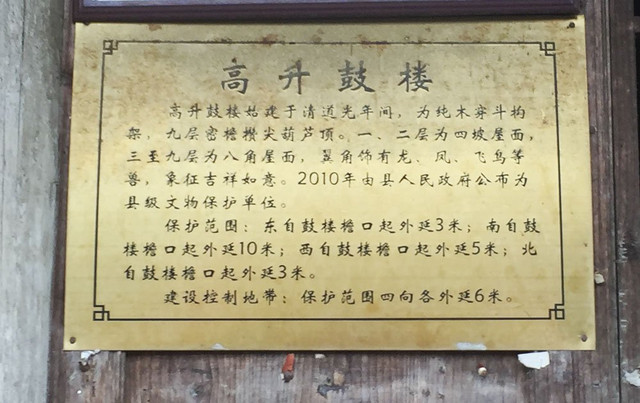 高升鼓楼
高升鼓楼始建于清道光年间，为纯木穿斗构
架，九层密檐攒尖葫芦顶。一、二层为四坡屋面，
三至九层为八角屋面，翼角饰有龙、凤、飞鸟等
兽，象征吉祥如意。2010年由县人民政府公布为
县级文物保护单位。
保护范围：东自鼓楼檐口起外延3米；南自鼓
楼檐口起外延10米；西自鼓楼檐口起外延5米；北
自鼓楼檐口起外延3米。
建设控制地带：保护范围四向各外延6米。